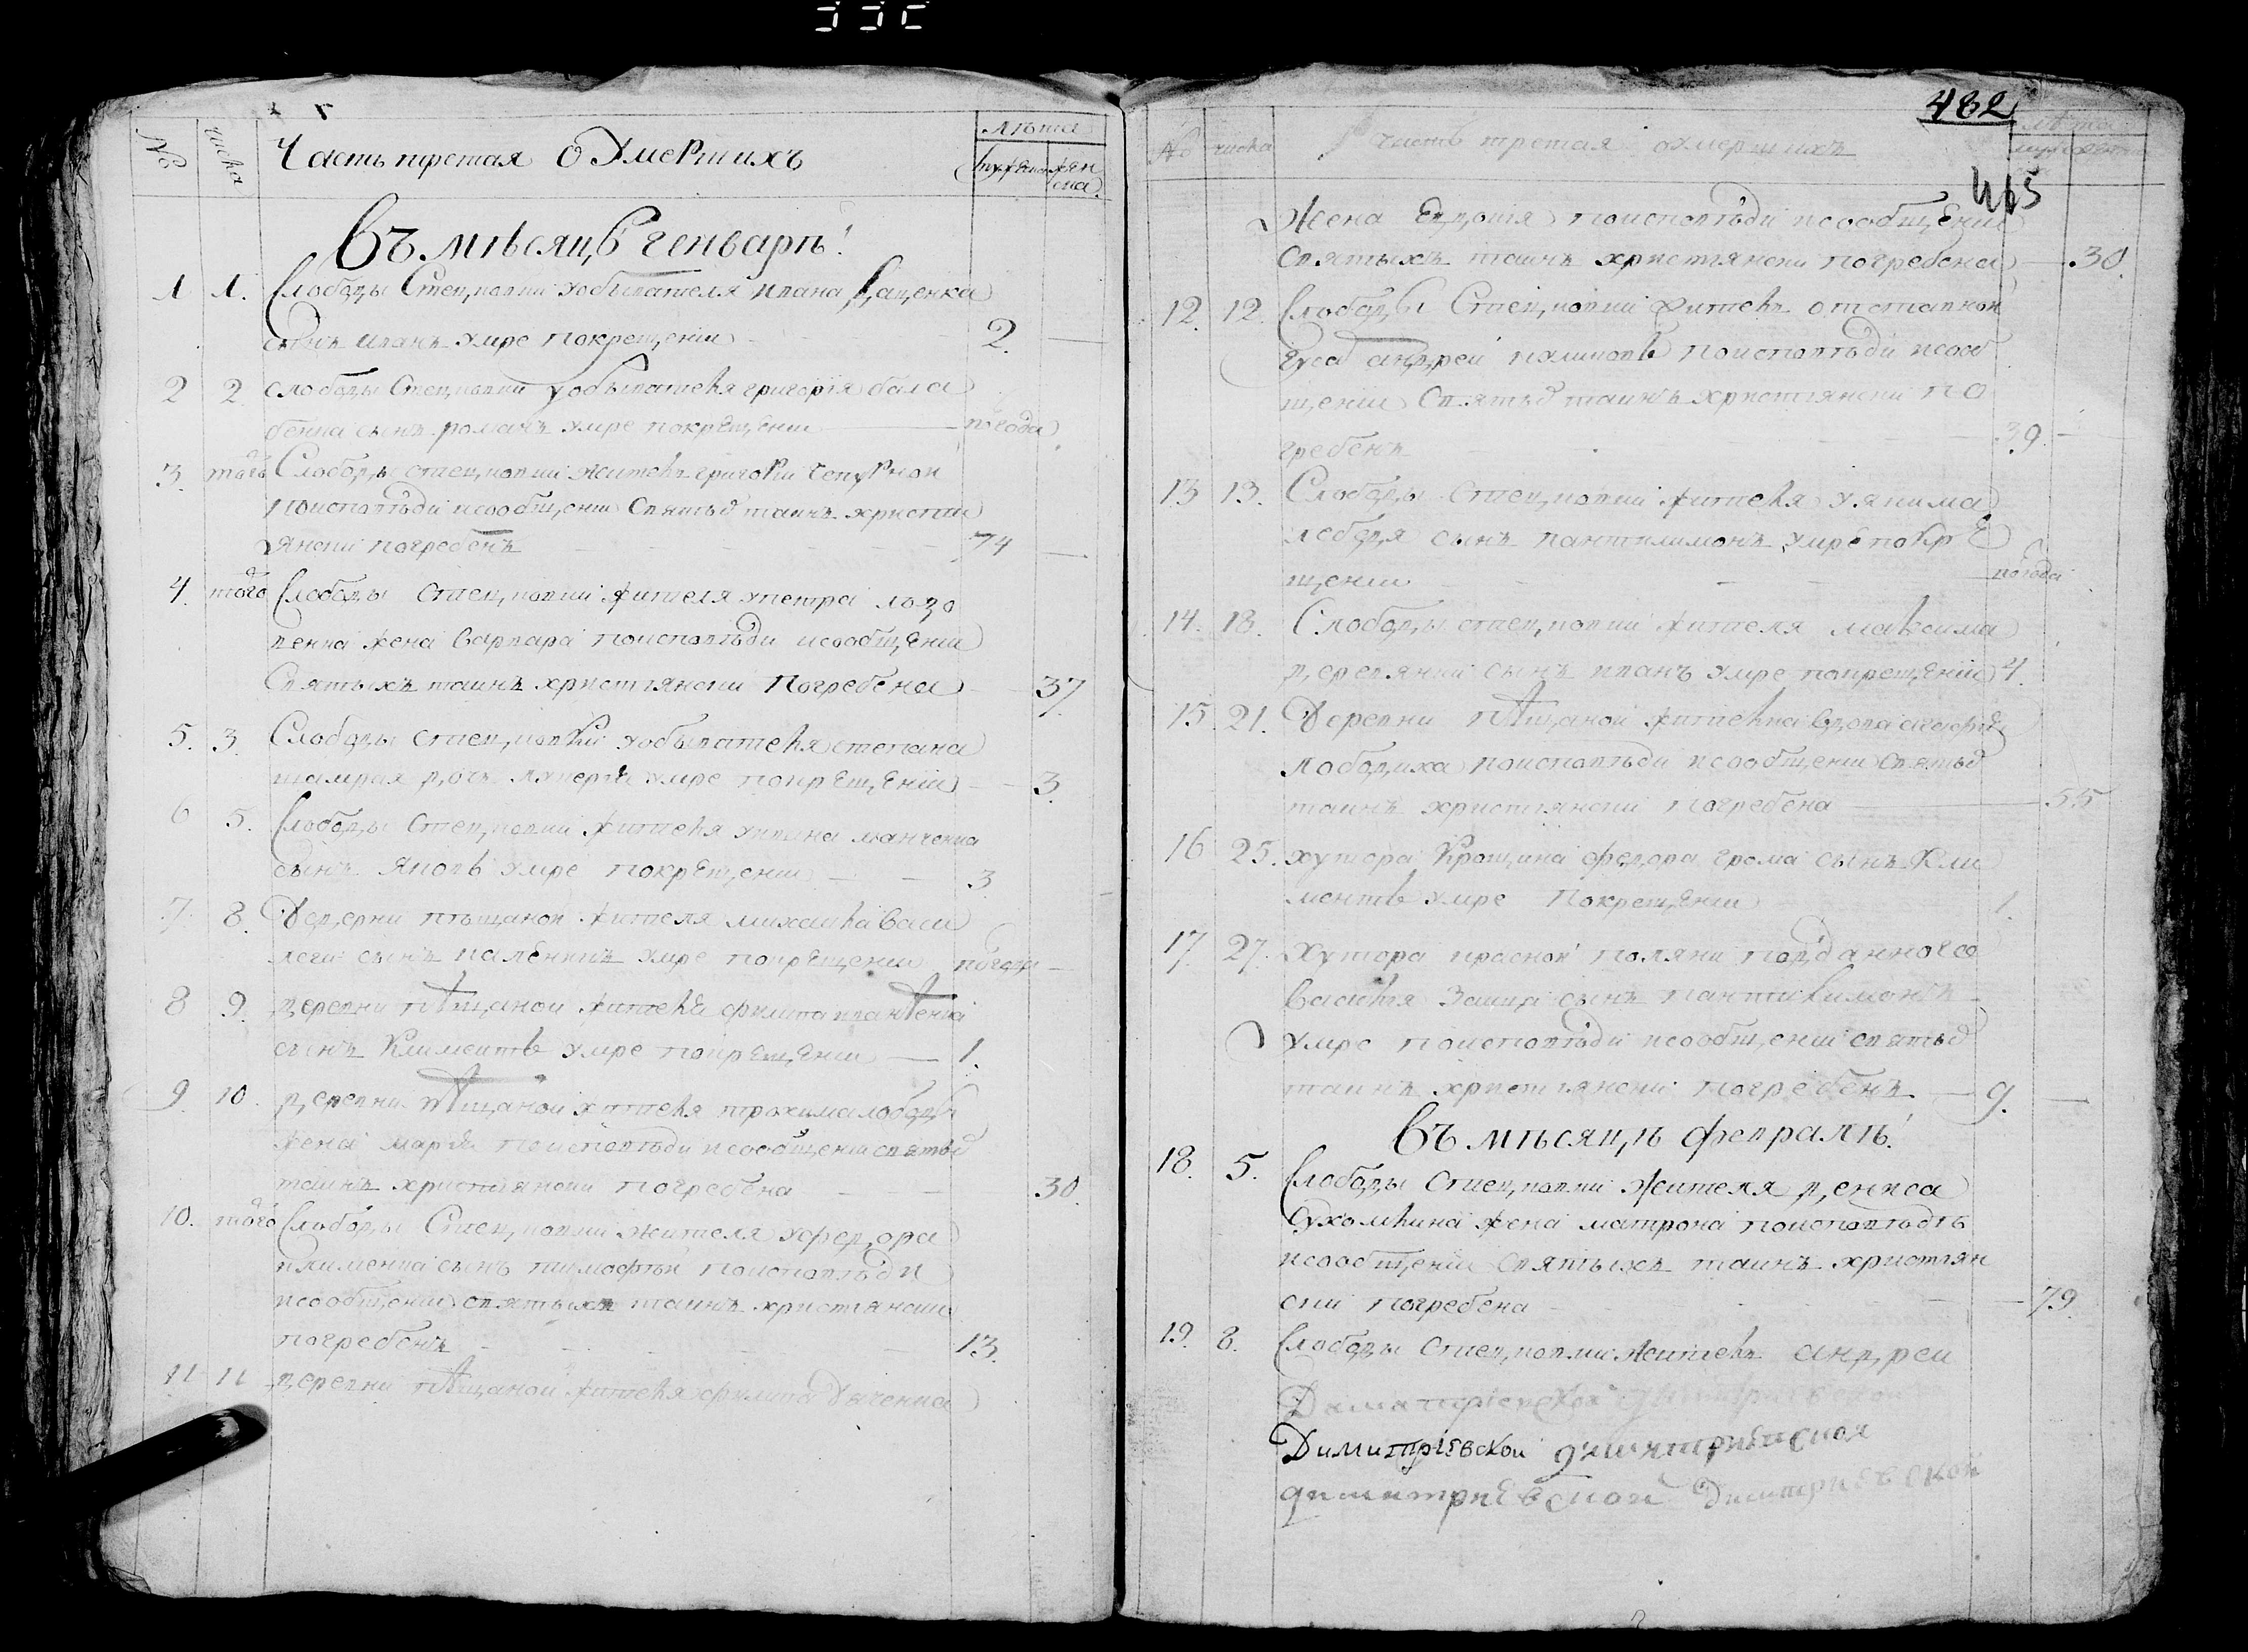 № числа Часть третая о Умершихъ лѣта мужеска женска
Въ мѣсяцѣ генварѣ
1 1. Слободы Стецковки у обывателя ивана
сынъ иванъ умре покрещеніи 2.
2 2. слободы Стецковки у обывателя григорія бала
бенка сынъ романъ умре покрещеніи погода
3. того Слободы стецковки житель григорий чепурной
поисповѣди исообщении Святыхъ таинъ христи
янски погребенъ 74
4. того Слободы стецковки жителя упетра
венка жена варвара поисповѣди исообщении
Святыхъ таинъ христіянски погребена 37.
5. 3. Слободы стецковки уобывателя степана
шамрая дочь умре покрещеніи 3
6 5. Слободы Стецковки жителя уивана манченка
сынъ яковъ умре покрещении 3
7. 8. Деревни пѣщаной жителя михаила васи
леги сынъ умре покрещении погода
8 9. деревни пѣщаной жителя филипа иванченка
сынъ Климентъ умре покрещении 1.
9. 10. деревни пѣщаной жителя трохима лободы
жена марія поисповѣди исообщении святыхъ
таинъ христіянски погребена 30.
10. того Слободы Стецковки жителя уфедора
клименка сынъ тимофѣй поисповѣди
исообщении святыхъ таинъ христіянски
погребенъ 13.
11 11 деревни пѣщаной жителя филипа дяченка
482
№ числа часть третая оумершихъ лѣта
465
Жена поисповѣди исообщении
Святыхъ таинъ христіянски погребена 30.
12. 12. Слободы Стецковки житель отставной
гусаръ андрей поисповѣди исооб
щении Святыхъ таинъ христіянски по
гребенъ 39.
13 13. Слободы Стецковки жителя уякима
лебедя сынъ пантилимонъ умре покре
щении погода
14. 13. Слободы стецковки жителя максима
деревянки сынъ иванъ умре покрещении 4.
15. 21. Деревни пѣщаной жителка вдова агафія
лободиха поисповѣди исообщении святыхъ
таинъ христіянски погребена 55
16 25. хутора федора грома сынъ Кли
ментъ умре покрещении 1.
17. 27. Хутора красной поляни подданного
василя заики сынъ пантилимонъ
умре поисповѣди исообщении святыхъ
таинъ христіянски погребенъ 9.
Въ мѣсяцѣ февралѣ
18. 5. Слободы Стецковки жителя дениса
Сухомлина жена матрона поисповѣдѣ
исообщении Святыхъ таинъ христіян
ски погребена 79.
19. 8. Слободы Стецковки житель андрей
Димитріевской
Димитріевской димитриевской
димитриевской Димитриевской